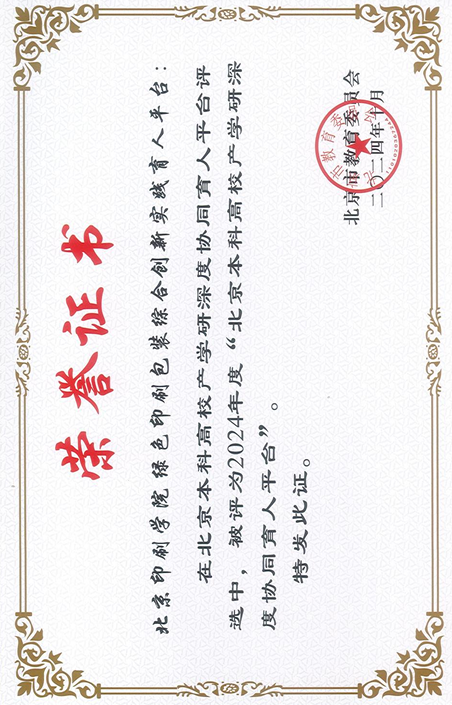 荣誉证书
北京印刷学院绿色印刷包装综合创新实践育人平台：
在北京本科高校产学研深度协同育人平台评
选中，被评为2024年度“北京本科高校产学研深
度协同育人平台”。
特发此证。
北京市教育委员会
二〇二四年十月